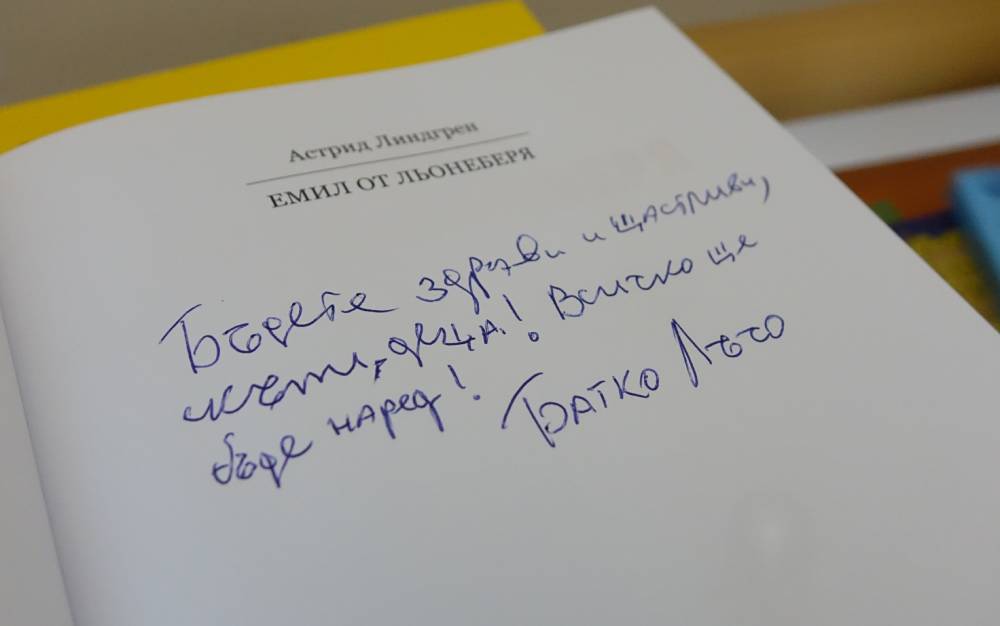 Астрид Линдгрен
ЕМИЛ ОТ ЛЬОНЕБЕРЯ
Бъдете здрави и щастливи,
деца! Всичко ще
бъде наред!
Батко Лъчо